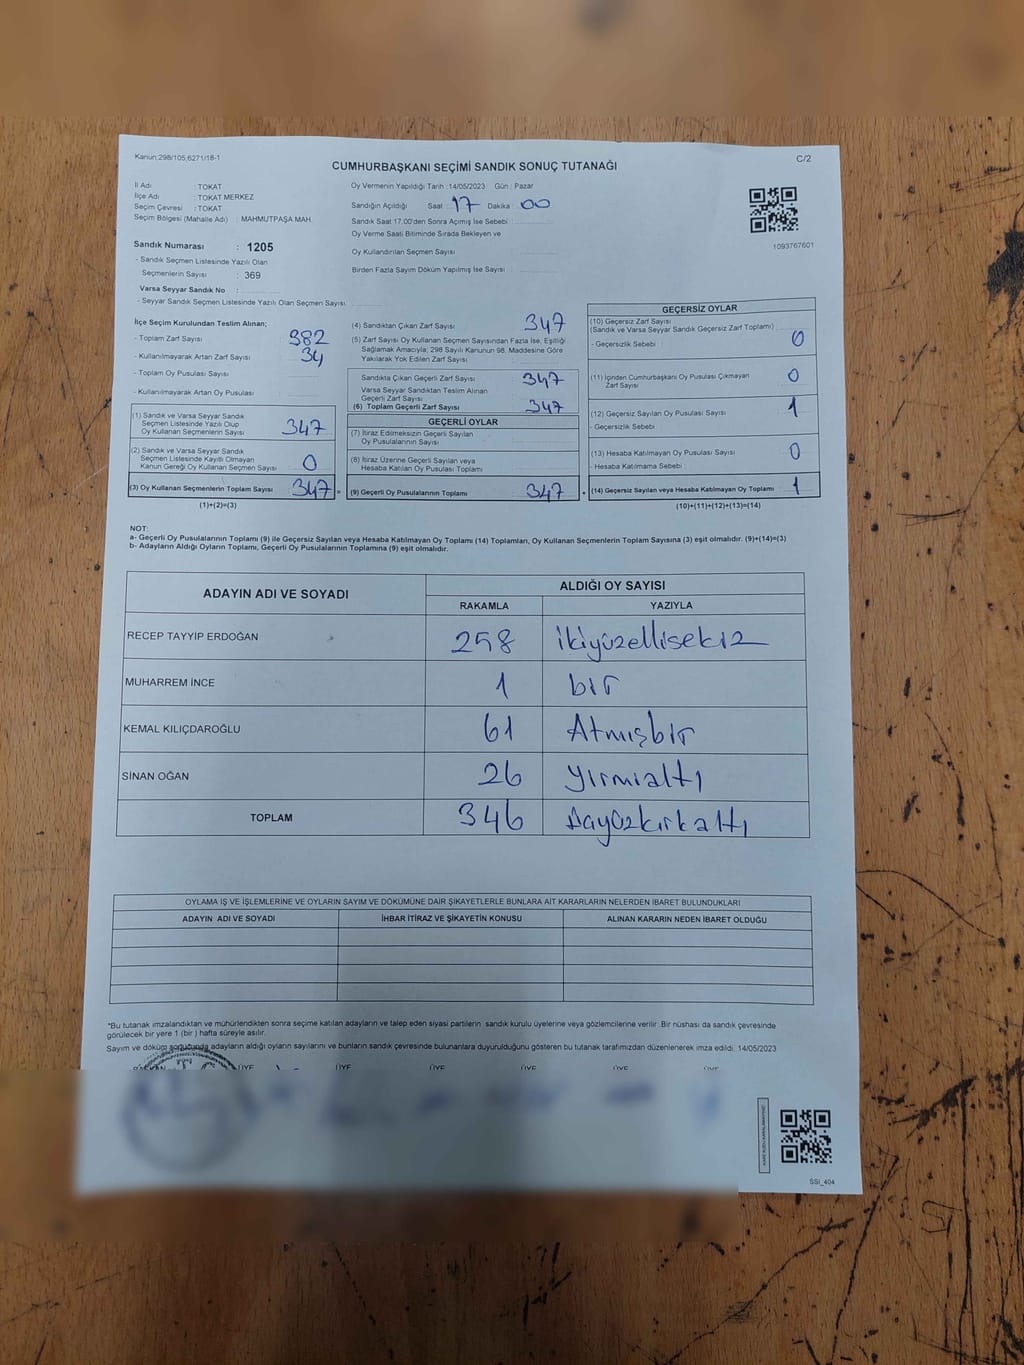 Kanun:298/105;6271/18-1
C/2
CUMHURBAŞKANI SEÇİMİ SANDIK SONUÇ TUTANAĞI
İl Adı : TOKAT
İlçe Adı : TOKAT MERKEZ
Seçim Çevresi : TOKAT
Seçim Bölgesi (Mahalle Adı) : MAHMUTPAŞA MAH.
Sandık Numarası : 1205
- Sandık Seçmen Listesinde Yazılı Olan
Seçmenlerin Sayısı : 369
Varsa Seyyar Sandık No :
- Seyyar Sandık Seçmen Listesinde Yazılı Olan Seçmen Sayısı:
Oy Vermenin Yapıldığı Tarih :14/05/2023 Gün : Pazar
Sandığın Açıldığı Saat : 17 Dakika : 00
Sandık Saat 17.00'den Sonra Açımış İse Sebebi :
Oy Verme Saati Bitiminde Sırada Bekleyen ve
Oy Kullandırılan Seçmen Sayısı
Birden Fazla Sayım Döküm Yapılmış İse Sayısı :
1093767601
İlçe Seçim Kurulundan Teslim Alınan;
- Toplam Zarf Sayısı : 382
- Kullanılmayarak Artan Zarf Sayısı : 34
- Toplam Oy Pusulası Sayısı :
- Kullanılmayarak Artan Oy Pusulası :
(1) Sandık ve Varsa Seyyar Sandık
Seçmen Listesinde Yazılı Olup
Oy Kullanan Seçmenlerin Sayısı 347
(2) Sandık ve Varsa Seyyar Sandık
Seçmen Listesinde Kayıtlı Olmayan
Kanun Gereği Oy Kullanan Seçmen Sayısı 0
(3) Oy Kullanan Seçmenlerin Toplam Sayısı 347 =
(1)+(2)=(3)
(4) Sandıktan Çıkan Zarf Sayısı 347
(5) Zarf Sayısı Oy Kullanan Seçmen Sayısından Fazla İse, Eşitliği
Sağlamak Amacıyla; 298 Sayılı Kanunun 98. Maddesine Göre
Yakılarak Yok Edilen Zarf Sayısı
Sandıkta Çıkan Geçerli Zarf Sayısı 347
Varsa Seyyar Sandıktan Teslim Alınan
Geçerli Zarf Sayısı
(6) Toplam Geçerli Zarf Sayısı 347
GEÇERLİ OYLAR
(7) İtiraz Edilmeksizin Geçerli Sayılan
Oy Pusulalarının Sayısı
(8) İtiraz Üzerine Geçerli Sayılan veya
Hesaba Katılan Oy Pusulası Toplamı
(9) Geçerli Oy Pusulalarının Toplamı 347 +
GEÇERSİZ OYLAR
(10) Geçersiz Zarf Sayısı
(Sandık ve Varsa Seyyar Sandık Geçersiz Zarf Toplamı)
- Geçersizlik Sebebi : 0
(11) İçinden Cumhurbaşkanı Oy Pusulası Çıkmayan
Zarf Sayısı 0
(12) Geçersiz Sayılan Oy Pusulası Sayısı 1
- Geçersizlik Sebebi :
(13) Hesaba Katılmayan Oy Pusulası Sayısı 0
- Hesaba Katılmama Sebebi :
(14) Geçersiz Sayılan veya Hesaba Katılmayan Oy Toplamı 1
(10)+(11)+(12)+(13)=(14)
NOT:
a- Geçerli Oy Pusulalarının Toplamı (9) ile Geçersiz Sayılan veya Hesaba Katılmayan Oy Toplamı (14) Toplamları, Oy Kullanan Seçmenlerin Toplam Sayısına (3) eşit olmalıdır. (9)+(14)=(3)
b- Adayların Aldığı Oyların Toplamı, Geçerli Oy Pusulalarının Toplamına (9) eşit olmalıdır.
ADAYIN ADI VE SOYADI ALDIĞI OY SAYISI
RAKAMLA YAZIYLA
RECEP TAYYİP ERDOĞAN 258 ikiyüzellisekiz
MUHARREM İNCE 1 bir
KEMAL KILIÇDAROĞLU 61 Atmışbir
SİNAN OĞAN 26 yirmialtı
TOPLAM 346
OYLAMA İŞ VE İŞLEMLERİNE VE OYLARIN SAYIM VE DÖKÜMÜNE DAİR ŞİKAYETLERLE BUNLARA AİT KARARLARIN NELERDEN İBARET BULUNDUKLARI
ADAYIN ADI VE SOYADI İHBAR İTİRAZ VE ŞİKAYETİN KONUSU ALINAN KARARIN NEDEN İBARET OLDUĞU
*Bu tutanak imzalandıktan ve mühürlendikten sonra seçime katılan adayların ve talep eden siyasi partilerin sandık kurulu üyelerine veya gözlemcilerine verilir. Bir nüshası da sandık çevresinde
görülecek bir yere 1 (bir ) hafta süreyle asılır.
Sayım ve döküm sonucunda adayların aldığı oyların sayılarını ve bunların sandık çevresinde bulunanlara duyurulduğunu gösteren bu tutanak tarafımızdan düzenlenerek imza edildi. 14/05/2023
BAŞKAN ÜYE ÜYE ÜYE ÜYE ÜYE ÜYE
SSİ_404